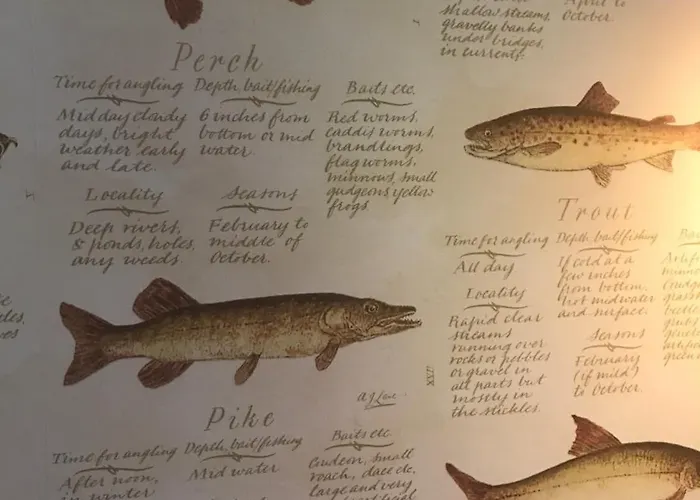 Shallow streams,
gravelly banks
under bridges,
in currents.
April to
October.
Perch
Time for angling
Midday cloudy
days, bright
weather early
and late.
Depth, bait/fishing
6 inches from
bottom or mid
water.
Baits etc.
Red worms,
caddis worms,
brandlings,
flag worms,
minnows, small
gudgeons, yellow
frogs.
Locality
Deep rivers,
& ponds, holes,
any weeds.
Seasons
February to
middle of
October.
Trout
Time for angling
All day
Depth, bait/fishing
If cold at a
few inches
from bottom.
hot midwater
and surface.
Locality
Rapid clear
streams
running over
rocks or pebbles
or gravel in
all parts but
mostly in
the stickles.
Seasons
February
(if mild)
to October.
XXII
Pike
Time for angling
After noon,
in winter
Depth, bait/fishing
Mid water
Baits etc
Gudgeon, small
roach, dace etc,
large and very